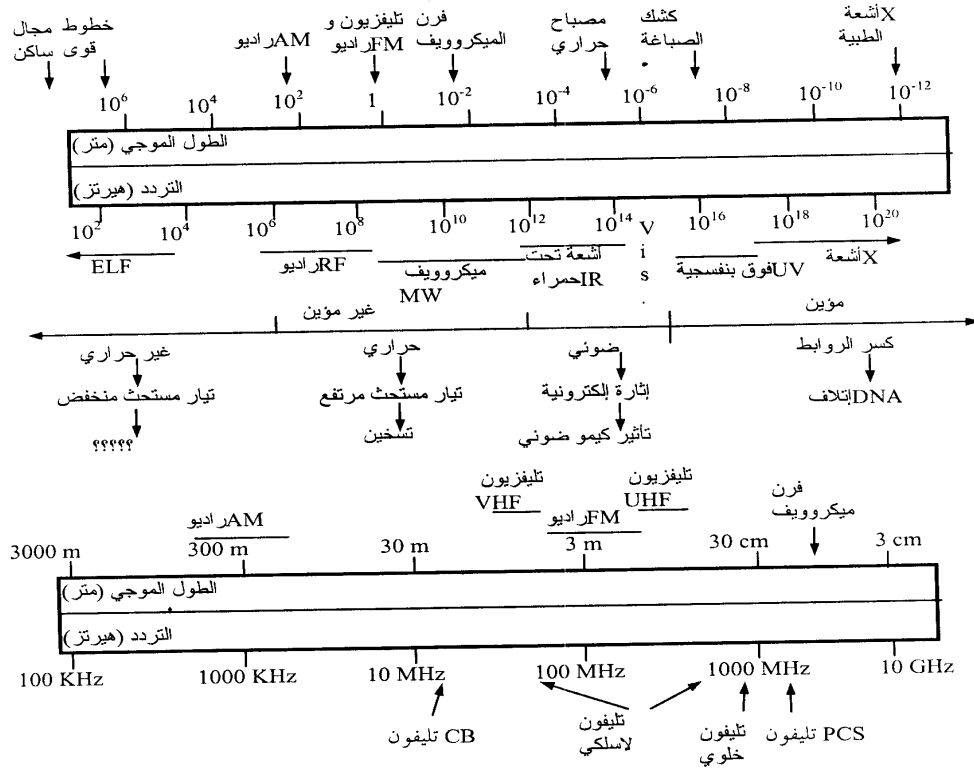 خطوط مجال
قوى ساكن
راديوAM
تليفزيون و
راديوFM
فرن
الميكروويف
مصباح
حراري
كشك
الصباغة
أشعةX
الطبية
10⁶ 10⁴ 10² 1 10⁻² 10⁻⁴ 10⁻⁶ 10⁻⁸ 10⁻¹⁰ 10⁻¹²
الطول الموجي (متر)
التردد (هيرتز)
10² 10⁴ 10⁶ 10⁸ 10¹⁰ 10¹² 10¹⁴ 10¹⁶ 10¹⁸ 10²⁰
V
i
s
.
ELF
راديوRF
ميكروويف
MW
أشعة تحت
حمراءIR
فوق بنفسجيةUV
أشعةX
غير مؤين
مؤين
غير حراري
تيار مستحث منخفض
؟؟؟؟؟
حراري
تيار مستحث مرتفع
تسخين
ضوئي
إثارة إلكترونية
تأثير كيمو ضوئي
كسر الروابط
إتلافDNA
راديوAM
تليفزيون
VHF
راديوFM
تليفزيون
UHF
فرن
ميكروويف
3000 m 300 m 30 m 3 m 30 cm 3 cm
الطول الموجي (متر)
التردد (هيرتز)
100 KHz 1000 KHz 10 MHz 100 MHz 1000 MHz 10 GHz
تليفون CB
تليفون
لاسلكي
تليفون
خلوي
تليفون PCS